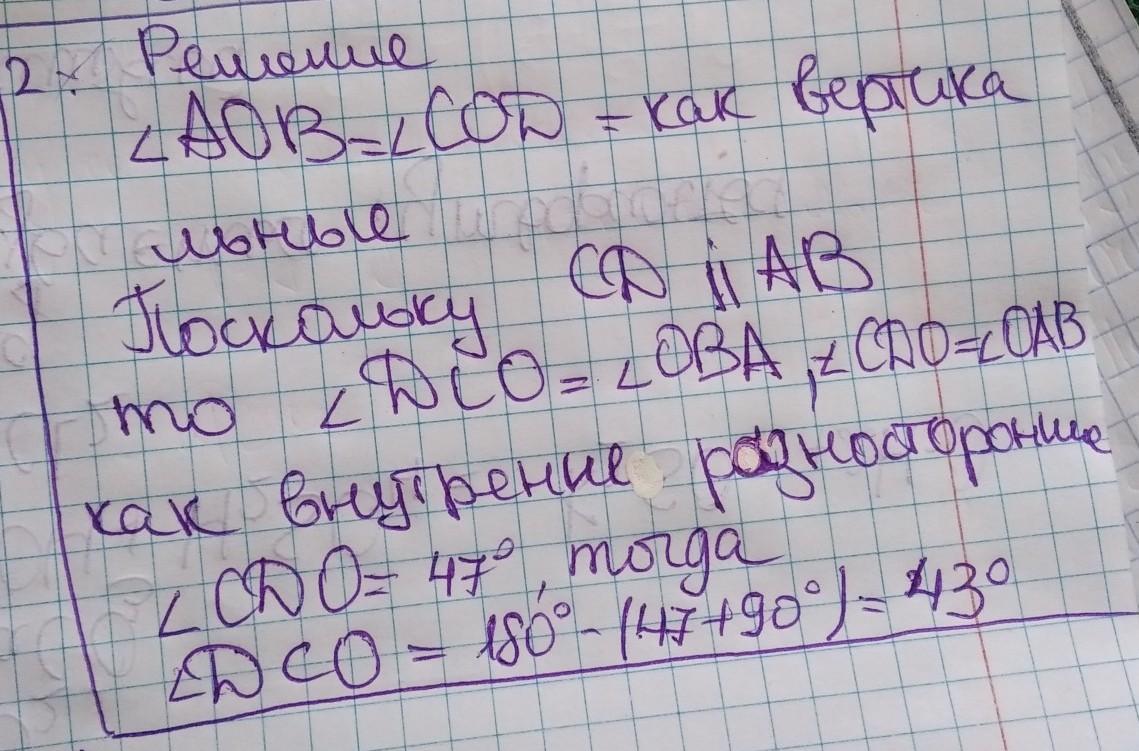 2. Решение
∠AOB=∠COD = как вертика
льные
Поскольку CD || AB
то ∠DCO = ∠OBA, ∠CDO=∠OAB
как внутрение разносторонние
∠CDO = 47°, тогда
∠DCO = 180° - (47+90°) = 43°